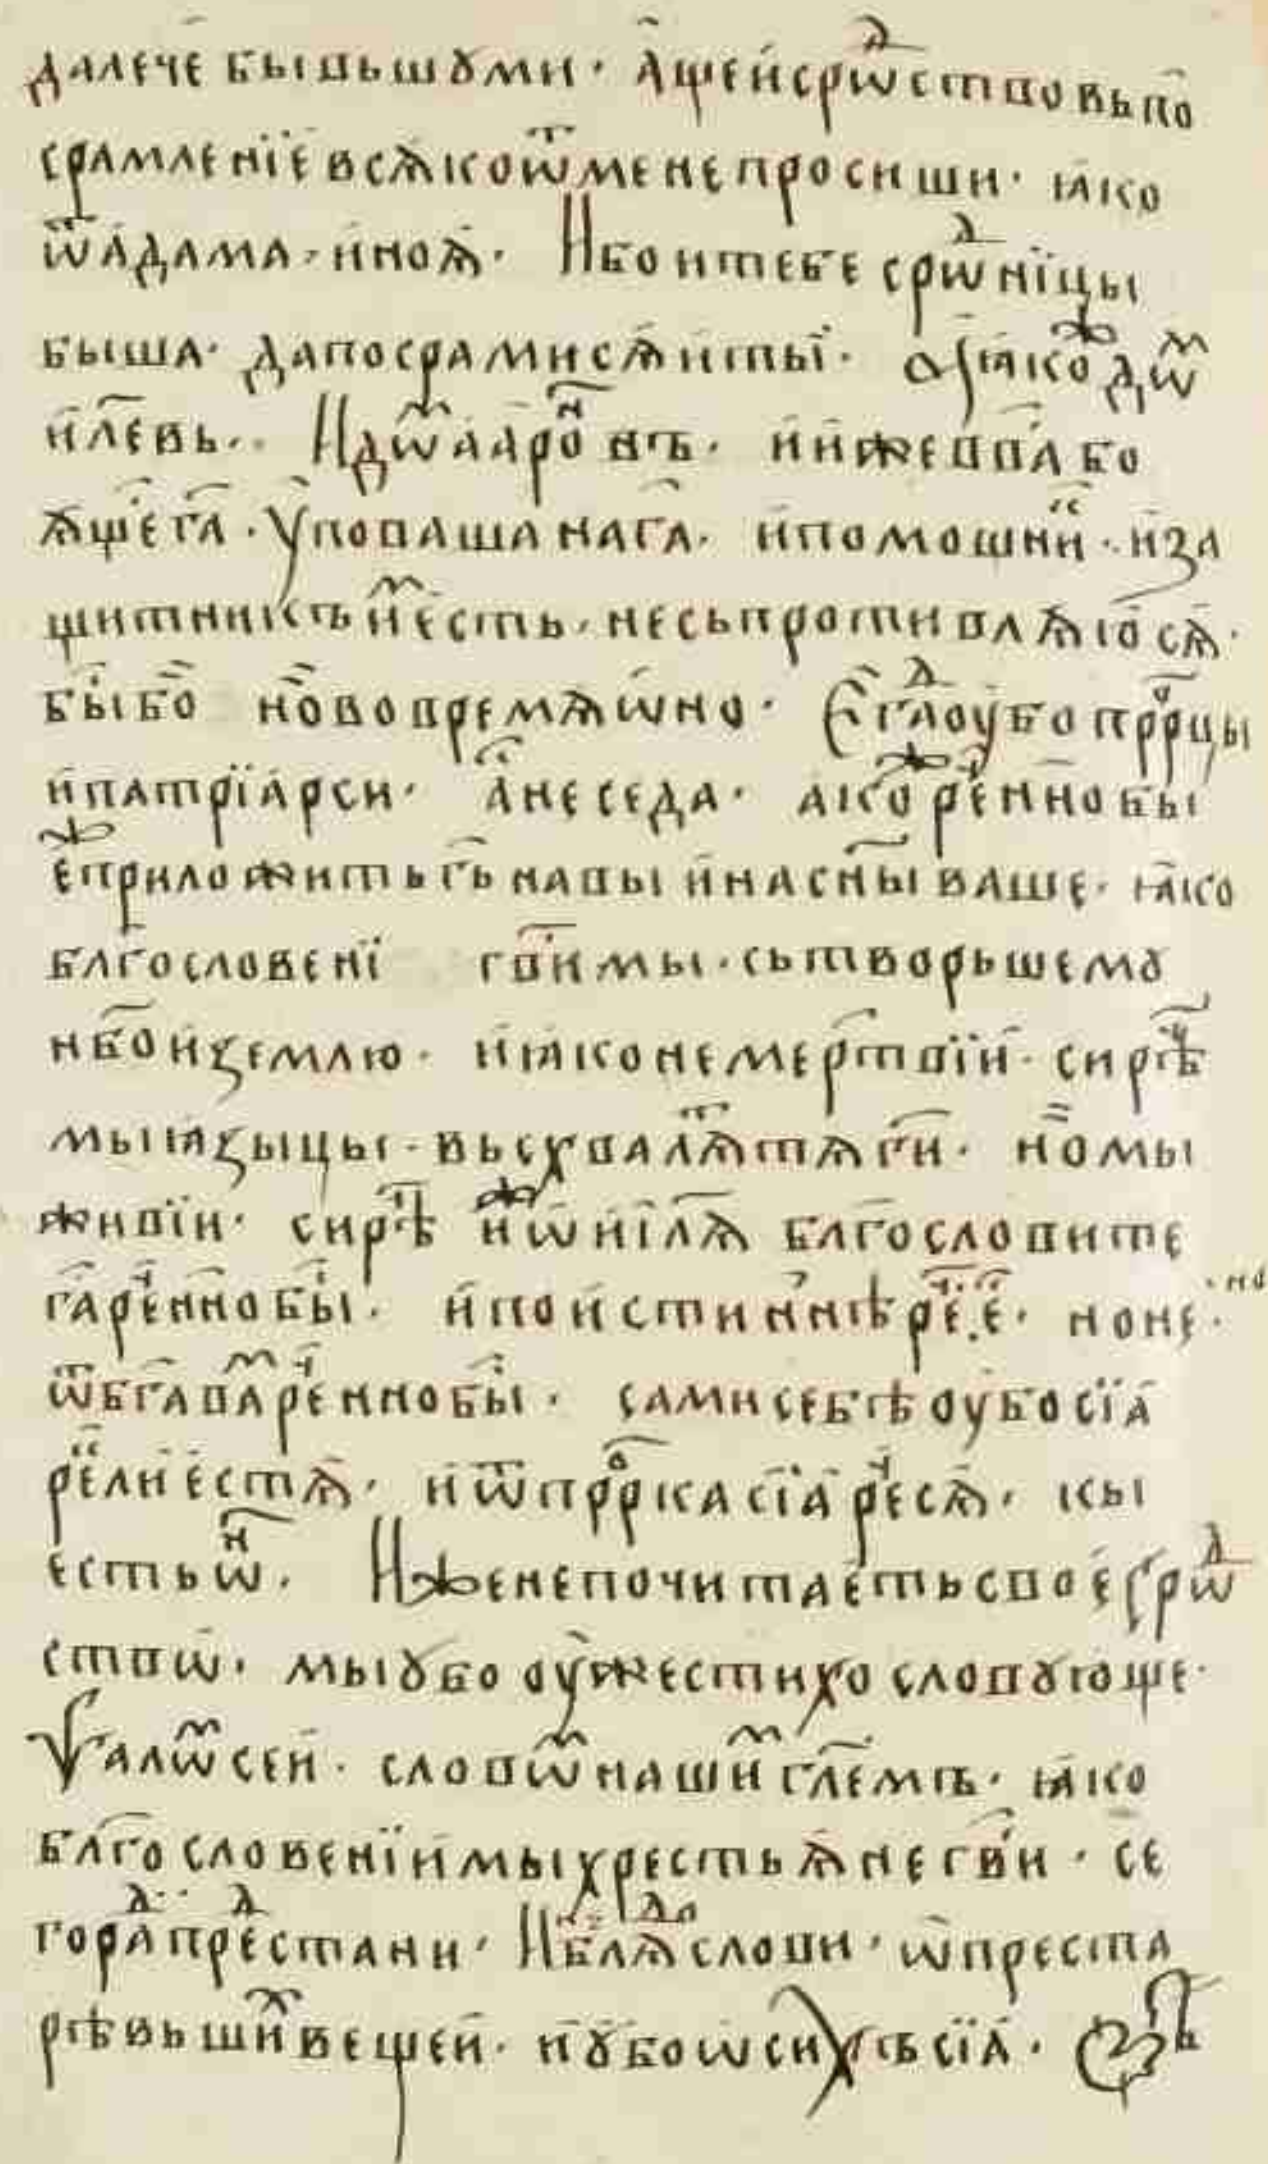 далече бывьшꙋми · а҆щеи҆срѡⷣствовьпо
срамленїевсѧ҆коѿменепросиши · ꙗ҆ко
ѿа҆дама · и҆ноѧ҆ · Ибоитебе срѡⷣнїцы
быша · дапосрамисѧ҆и҆ты̀ · ꙗ҆коⷤ дѡⷨ
и҆л҃евь · Идѡⷨа҆а҆роⷩ҇въ · и҆и҆жеввл бо
ѧ҆щеⷵг҃а · у҆повашанаг҃а · и҆помощниⷦ · и҆за
щитникъи҆ⷨесть · несьпротивлѧ҆юсѧ҆ ·
быⷭ҇бо новоⷡремѧѡ҆но · Егⷣаоу҆бопррⷪ҇цы
и҆патрїа҆рси · а҆неседа · а҆коⷤреⷱ҇ннобы
еⷤприложитьг҃ьнавы и҆насн҃ываше · ꙗ҆ко
блгⷭословенї гв҃и҆мы · сьтворьшемꙋ
нб҃ои҆землю · и҆ꙗ҆конемертвїи҆ · сирѣⷱ
мыꙗ҆зыцы · вьсхвалѧⷮтѧг҃и · но҆мы
живїи · сирѣⷱ и҆ⷤѡ҆и҆і҃лѧ благословите
г҃ареⷱннобы҆ · и҆поистиннѣреⷱ.еⷭ · ноне · но
ѿбг҃аваⷨреⷱннобы҆ · самисебѣоу҆босїа҆
реⷦлие҆стѧ҆ · и҆ѿпррⷪкасїа҆реⷱсѧ҆ · кы
естьѡⷩ҇ · Иженепочитаетьсвое҆срѡⷣ
ствѡ · мыꙋбооу҆жестихословꙋюще ·
Ѱалѡⷨсеи · словѡⷨнашиⷨгл҃емъ · ꙗ҆ко
блг҃ословенїи҆мыхрестьѧ҆негв҃и · се
гораⷣпреⷣстани · Ибл҃ѧслови · ѡ҆преста
рѣвьшиⷯвещеи · и҆ꙋбоѡ҆сиⷯсїа҆ ·